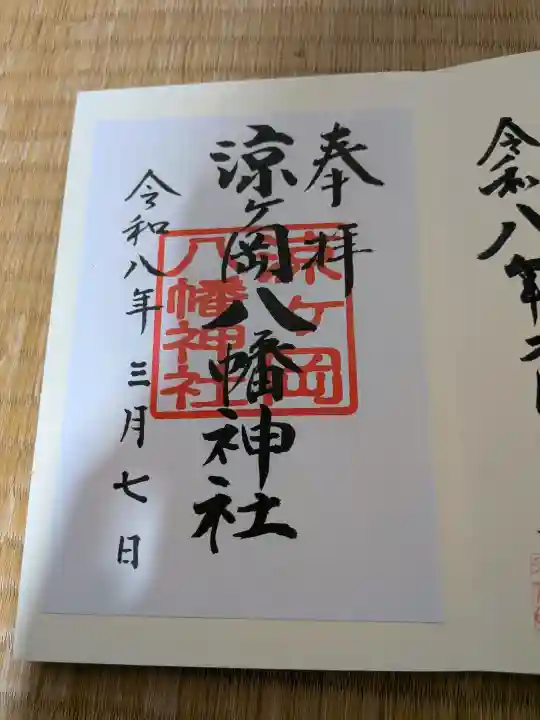 令和八年二月
奉拝
涼ヶ岡八幡神社
涼ヶ岡
八幡神社
令和八年三月七日